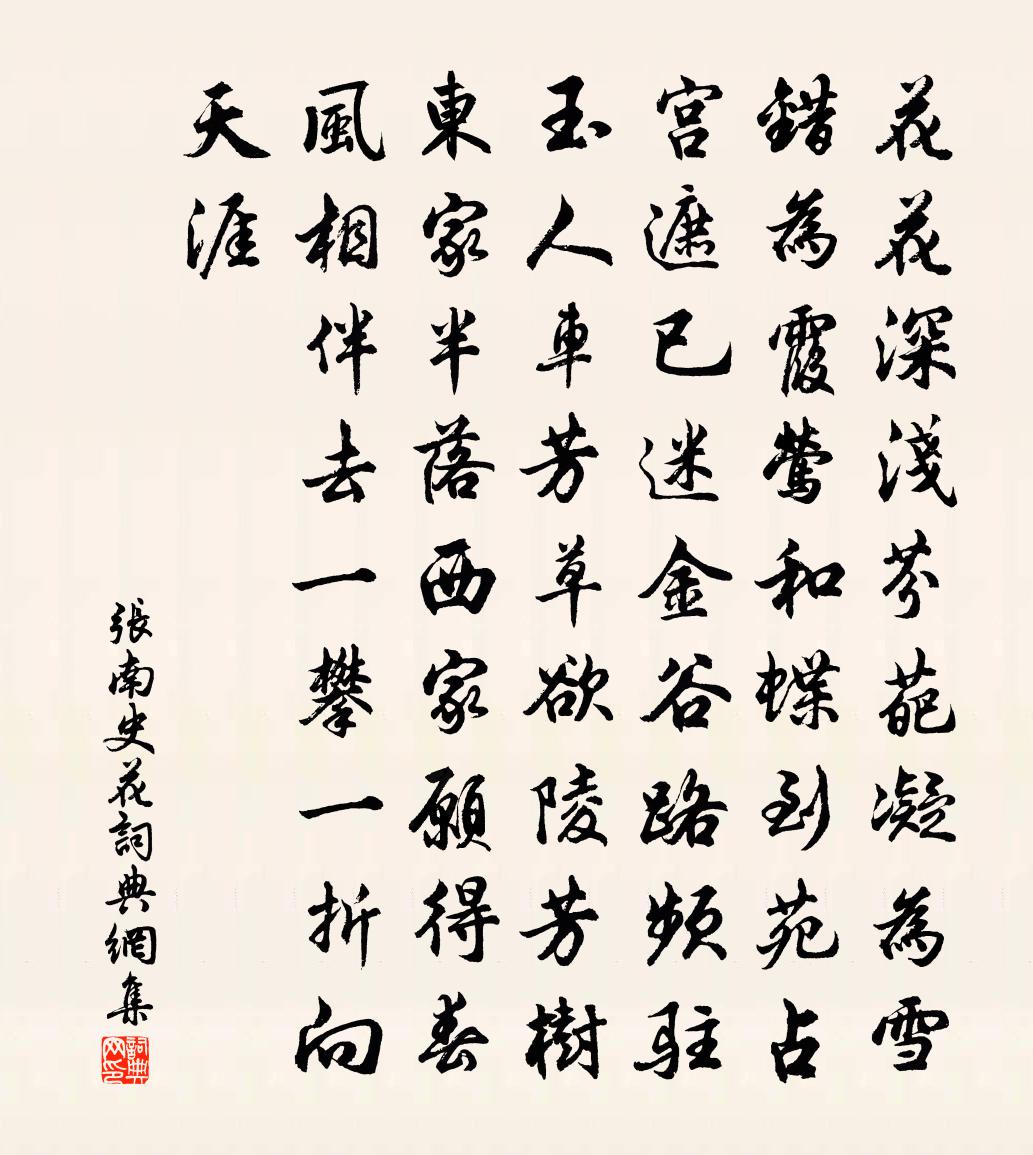 花花深淺芬葩凝為雪
錯為霞鶯和蝶到苑占
宮遮已迷金谷路頻駐
玉人車芳草欲陵芳樹
東家半落西家願得春
風相伴去一攀一折向
天涯
張南史花詞典網集
詞典网印